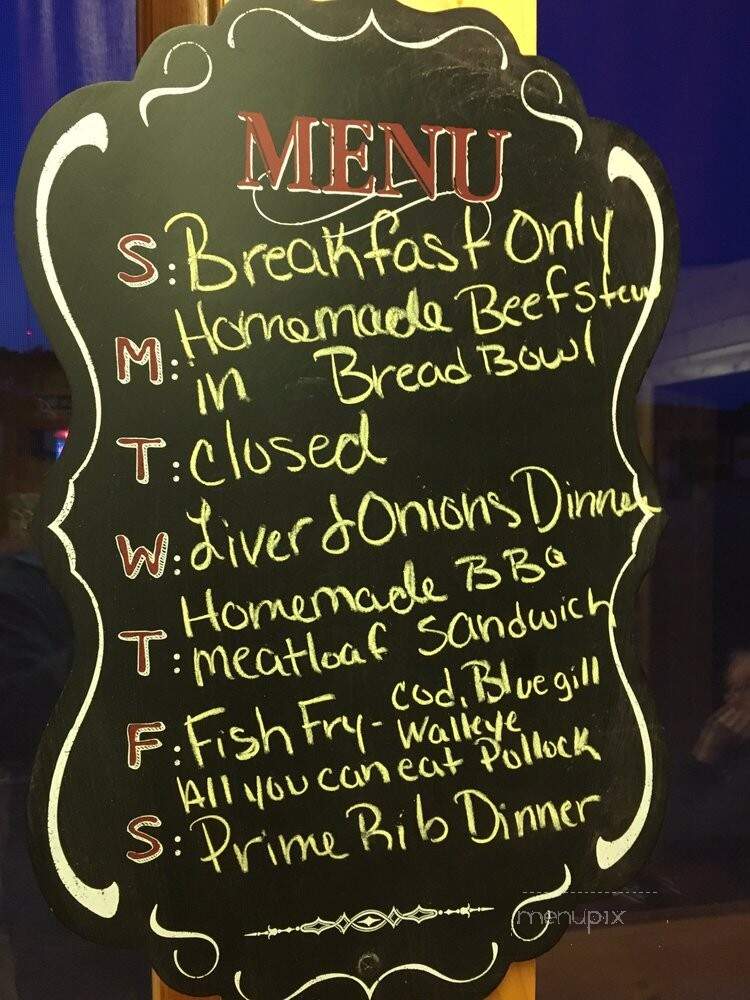 MENU
S: Breakfast Only
Homemade Beef stew
M: in Bread Bowl
T: closed
W: Liver & Onions Dinner
Homemade BBQ
T: meatloaf Sandwich
F: Fish Fry - cod, Bluegill
Walleye
All you can eat Pollock
S: Prime Rib Dinner
menupix